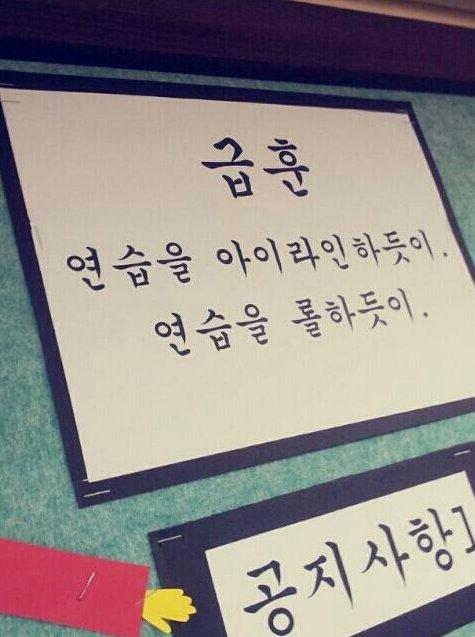 급훈
연습을 아이라인하듯이.
연습을 롤하듯이.
공지사항